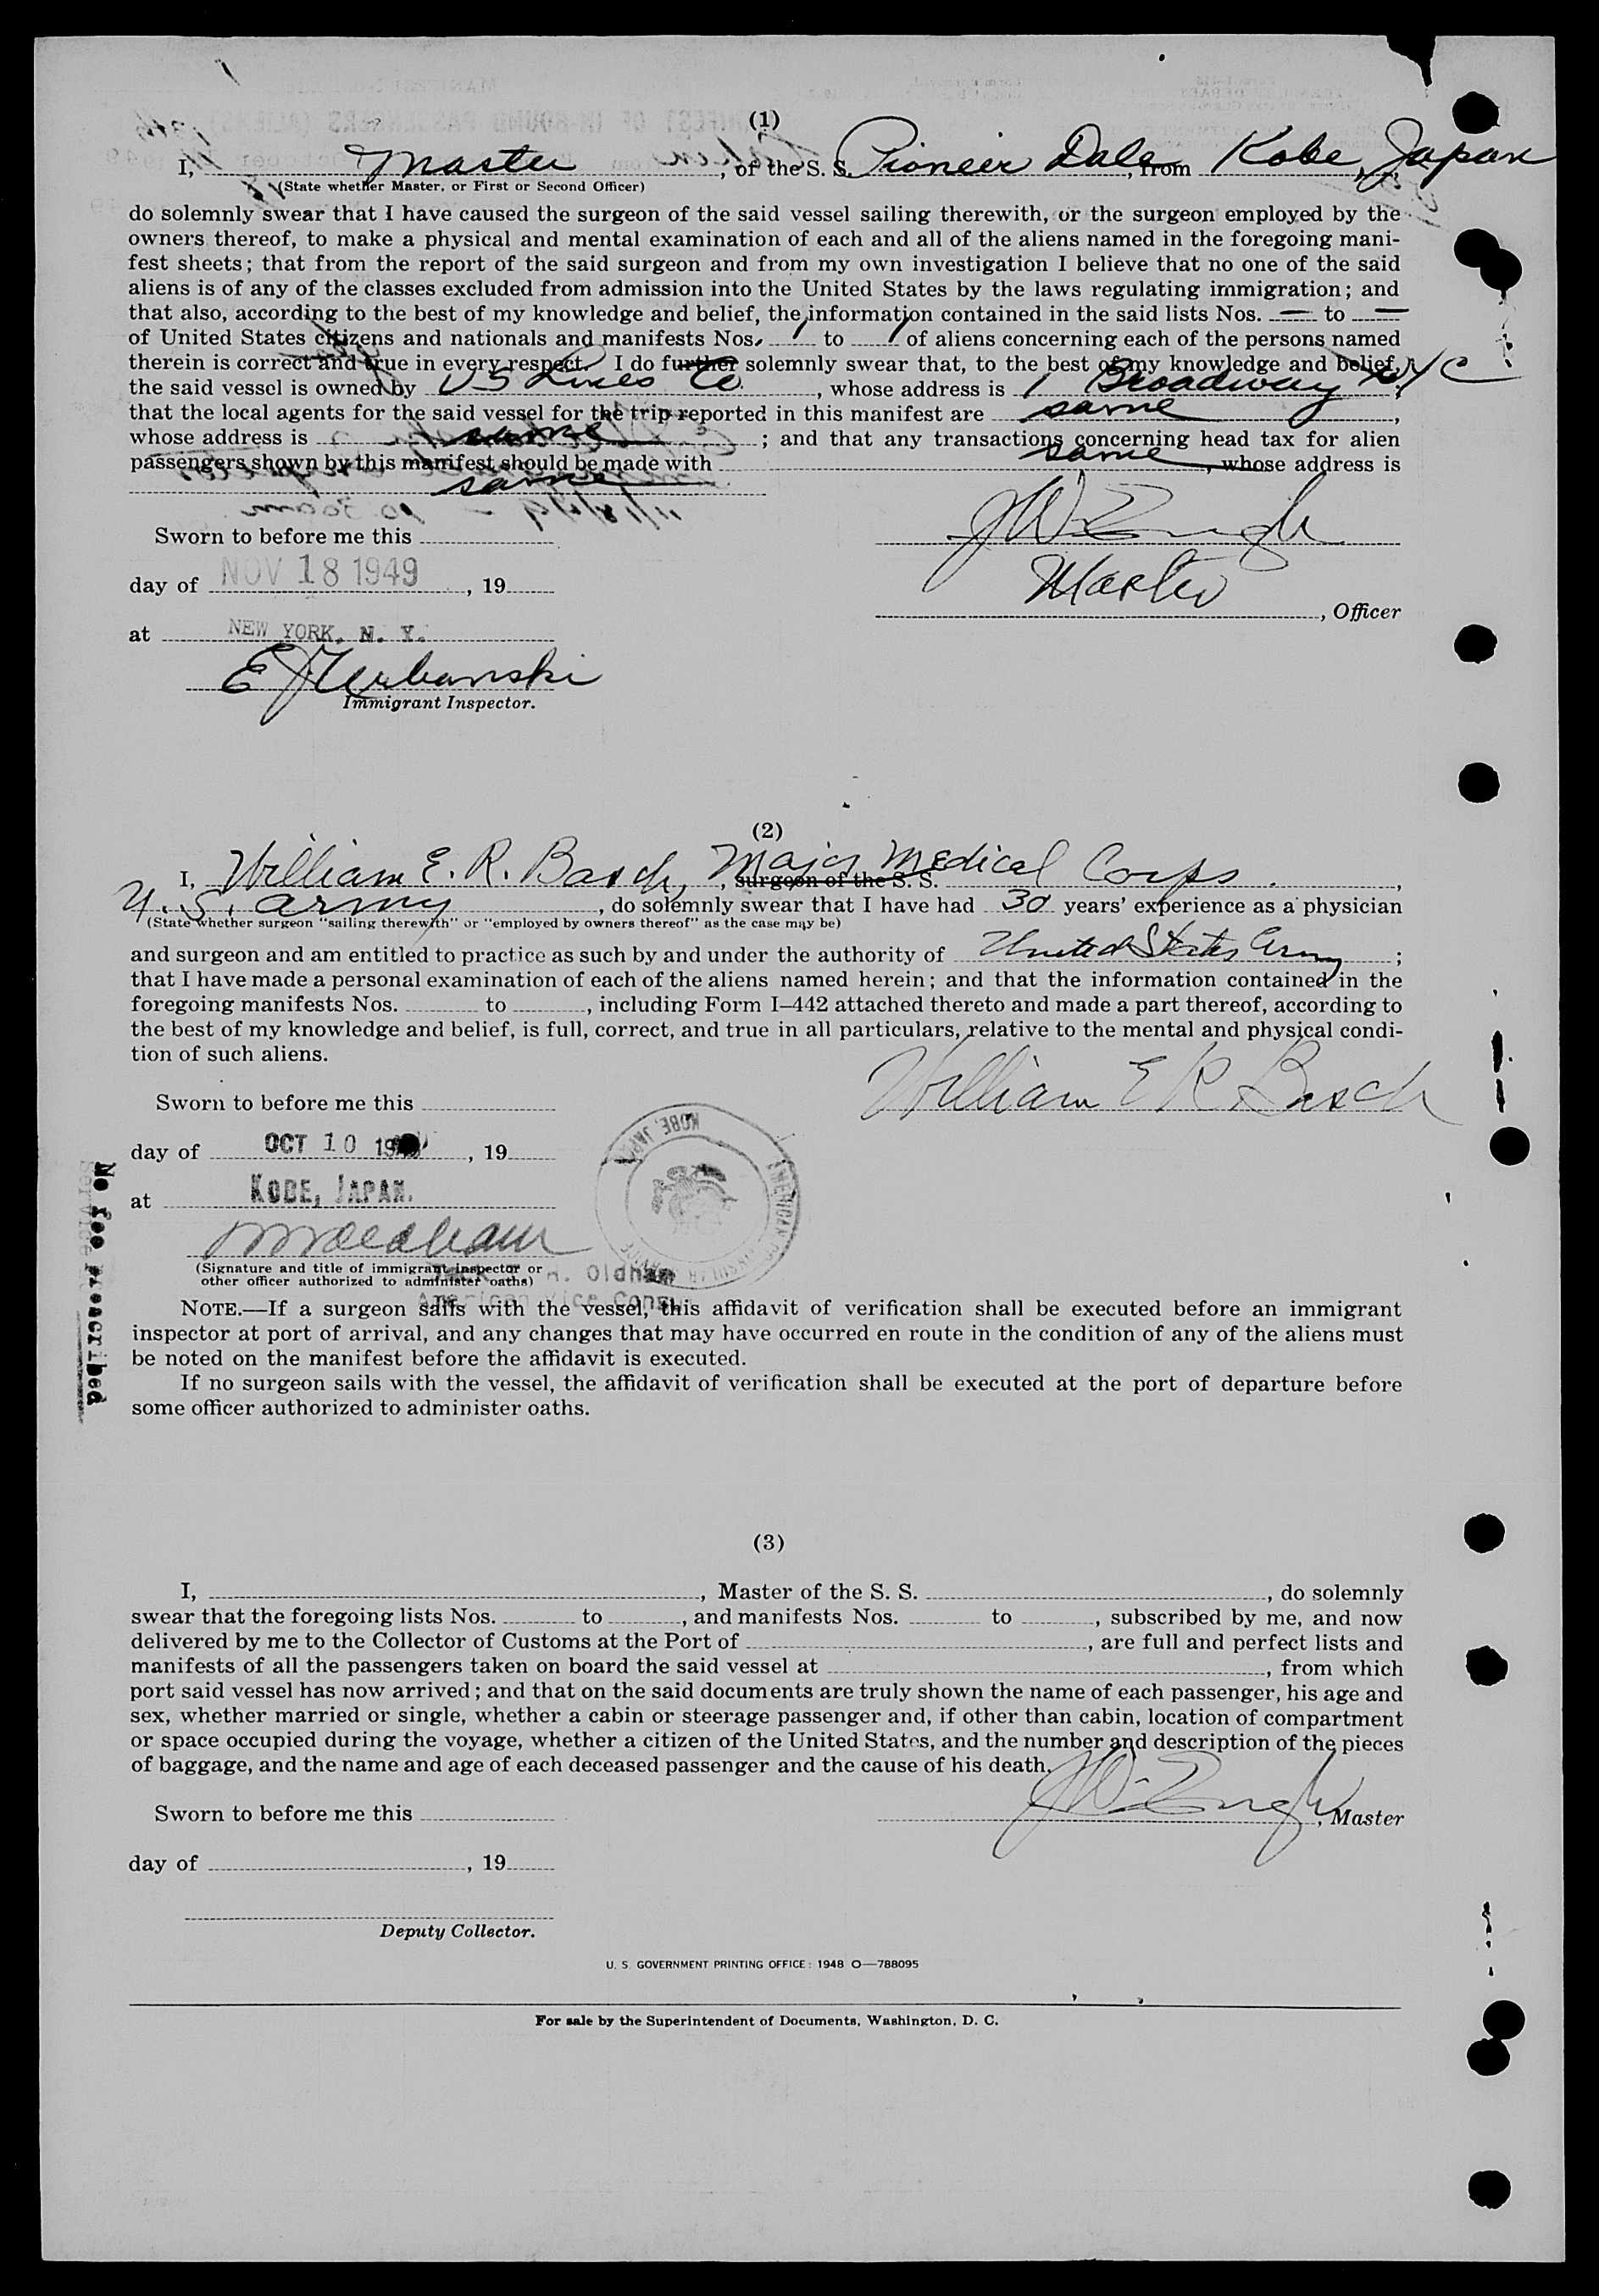 (1)
I, Master, of the S. S. Pioneer Dale, from Kobe, Japan
(State whether Master, or First or Second Officer)
do solemnly swear that I have caused the surgeon of the said vessel sailing therewith, or the surgeon employed by the
owners thereof, to make a physical and mental examination of each and all of the aliens named in the foregoing mani-
fest sheets; that from the report of the said surgeon and from my own investigation I believe that no one of the said
aliens is of any of the classes excluded from admission into the United States by the laws regulating immigration; and
that also, according to the best of my knowledge and belief, the information contained in the said lists Nos. — to —
of United States citizens and nationals and manifests Nos. 1 to 1 of aliens concerning each of the persons named
therein is correct and true in every respect. I do further solemnly swear that, to the best of my knowledge and belief,
the said vessel is owned by U S Lines Co, whose address is 1 Broadway N Y C;
that the local agents for the said vessel for the trip reported in this manifest are same,
whose address is same; and that any transactions concerning head tax for alien
passengers shown by this manifest should be made with same, whose address is
same
Sworn to before me this
day of NOV 18 1949, 19
Master, Officer
at NEW YORK, N. Y.
E J Urbanski
Immigrant Inspector.
(2)
I, William E. R. Basch, Major Medical Corps, surgeon of the S. S.
U. S. Army, do solemnly swear that I have had 30 years' experience as a physician
(State whether surgeon "sailing therewith" or "employed by owners thereof" as the case may be)
and surgeon and am entitled to practice as such by and under the authority of United States Army;
that I have made a personal examination of each of the aliens named herein; and that the information contained in the
foregoing manifests Nos. to , including Form I–442 attached thereto and made a part thereof, according to
the best of my knowledge and belief, is full, correct, and true in all particulars, relative to the mental and physical condi-
tion of such aliens.
William E R Basch
Sworn to before me this
day of OCT 10 19, 19
KOBE, JAPAN
AMERICAN CONSULAR SERVICE
at KOBE, JAPAN.
(Signature and title of immigrant inspector or
other officer authorized to administer oaths)
Oldham
American Vice Consul
No fee prescribed
NOTE.—If a surgeon sails with the vessel, this affidavit of verification shall be executed before an immigrant
inspector at port of arrival, and any changes that may have occurred en route in the condition of any of the aliens must
be noted on the manifest before the affidavit is executed.
If no surgeon sails with the vessel, the affidavit of verification shall be executed at the port of departure before
some officer authorized to administer oaths.
(3)
I, , Master of the S. S. , do solemnly
swear that the foregoing lists Nos. to , and manifests Nos. to , subscribed by me, and now
delivered by me to the Collector of Customs at the Port of , are full and perfect lists and
manifests of all the passengers taken on board the said vessel at , from which
port said vessel has now arrived; and that on the said documents are truly shown the name of each passenger, his age and
sex, whether married or single, whether a cabin or steerage passenger and, if other than cabin, location of compartment
or space occupied during the voyage, whether a citizen of the United States, and the number and description of the pieces
of baggage, and the name and age of each deceased passenger and the cause of his death.
Sworn to before me this
, Master
day of , 19
Deputy Collector.
U. S. GOVERNMENT PRINTING OFFICE : 1948 O—788095
For sale by the Superintendent of Documents, Washington, D. C.